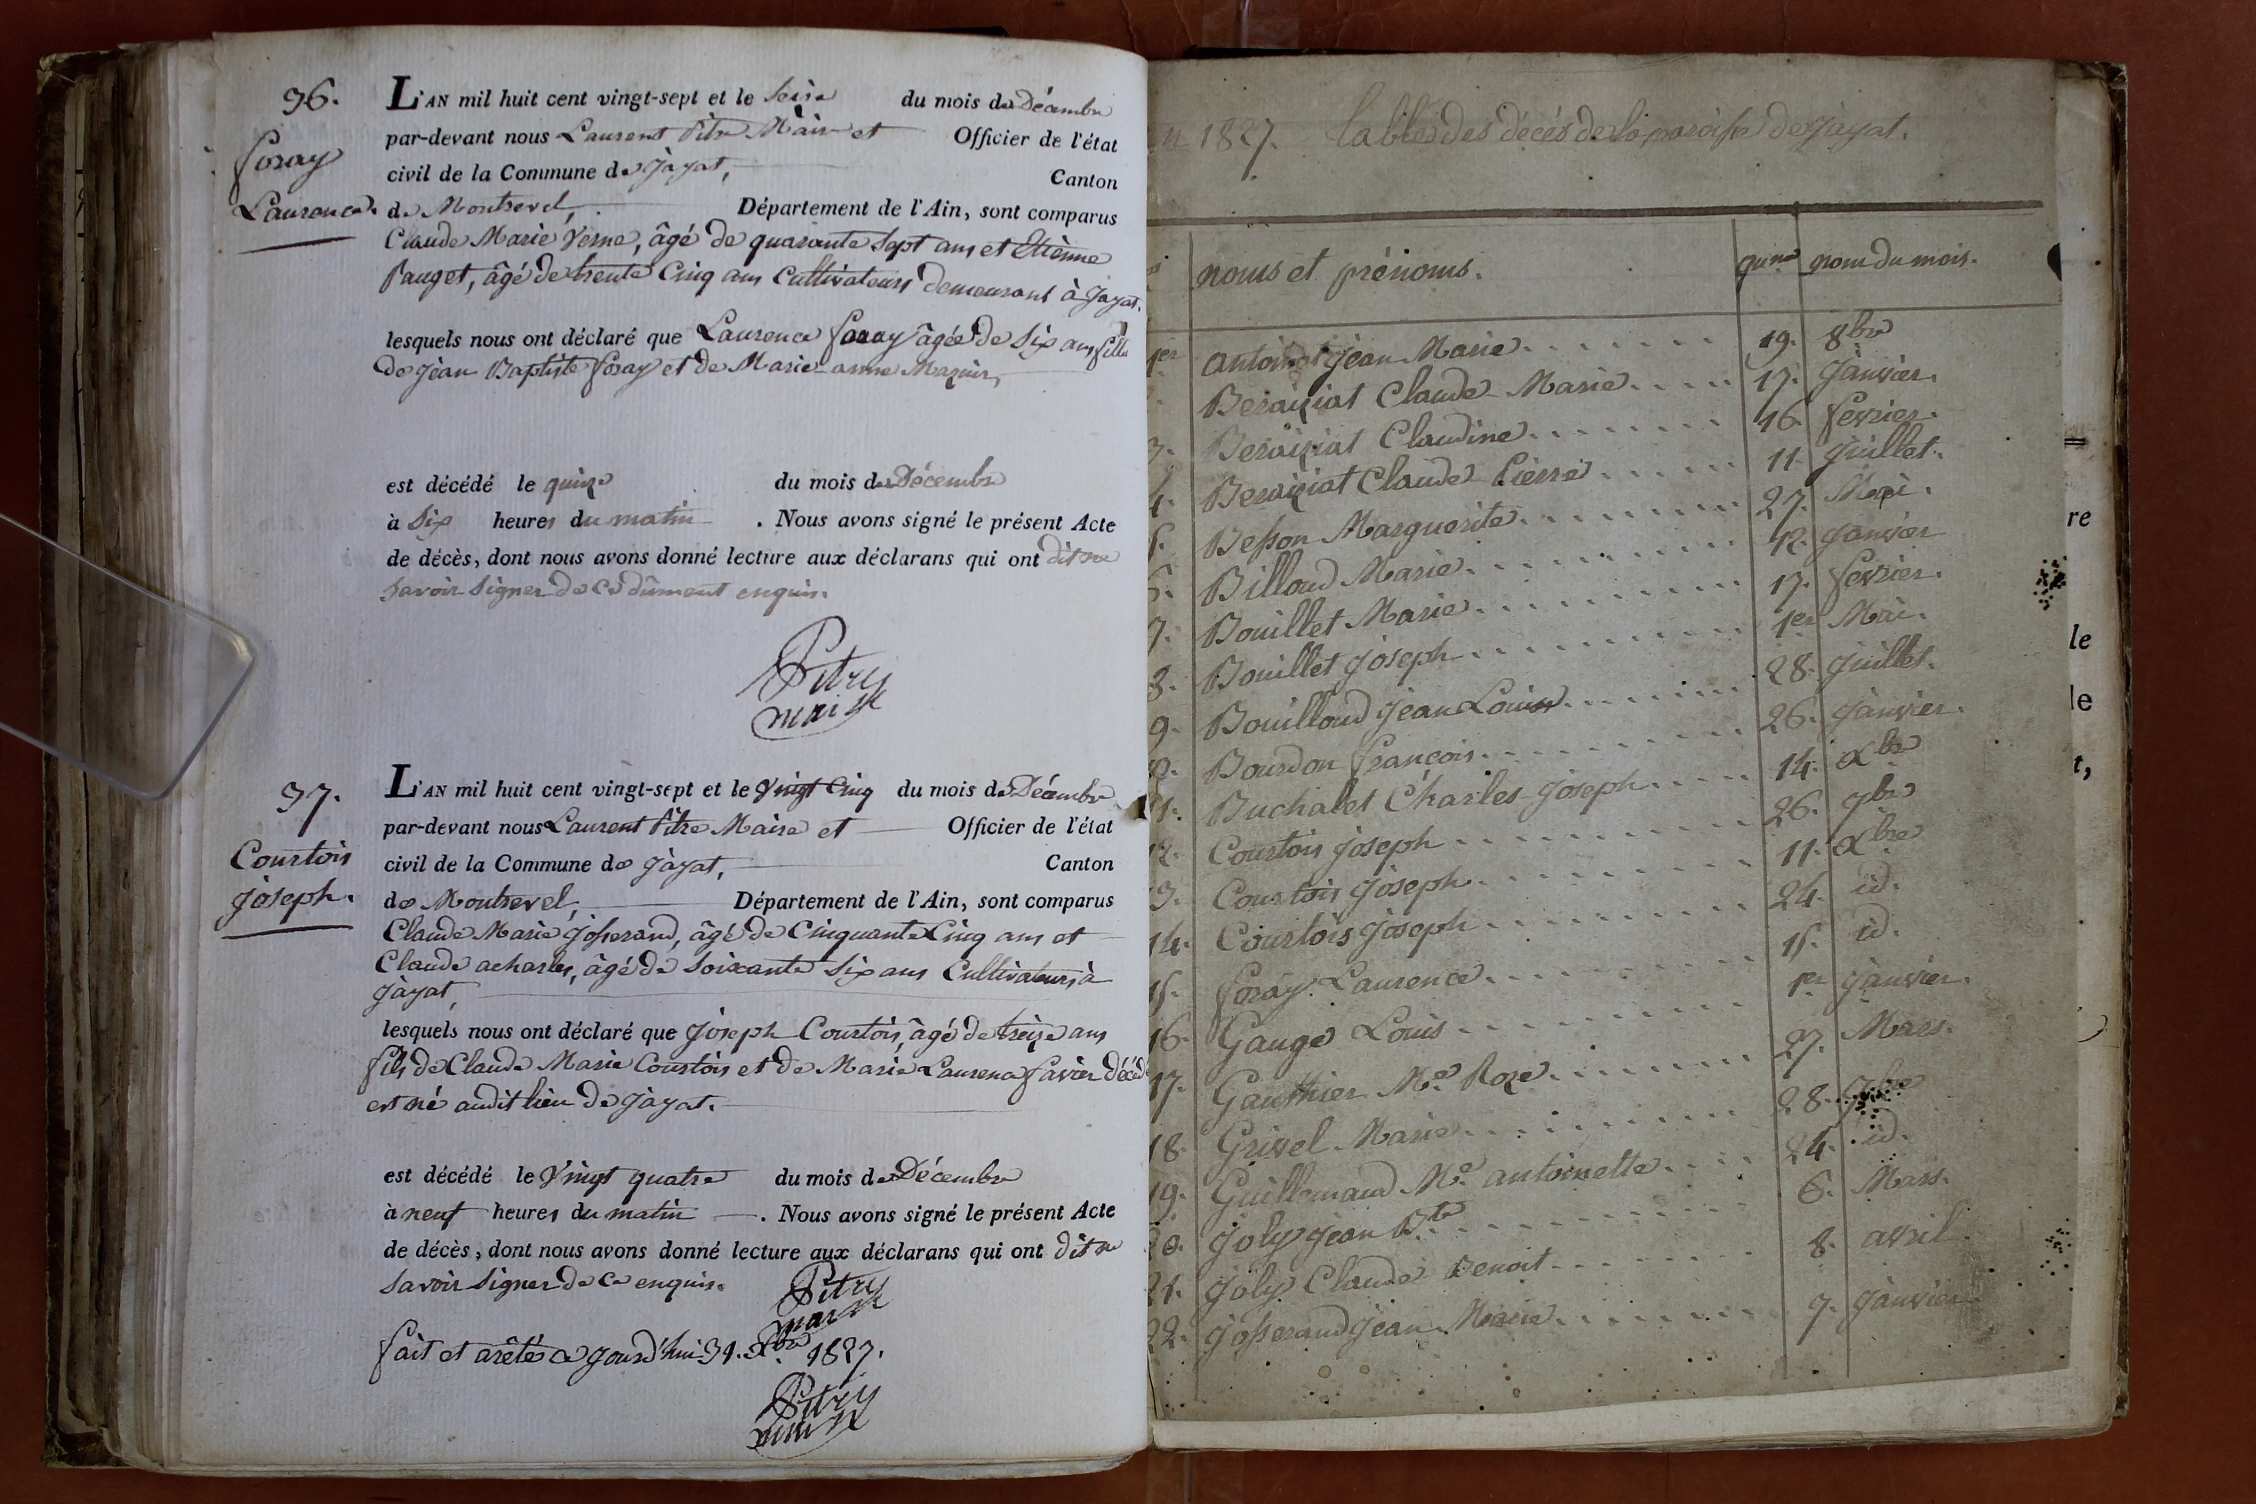 36.
foray
Laurence.
L'AN mil huit cent vingt-sept et le seize du mois de Décembre
par-devant nous Laurent Pitre Maire et Officier de l'état
civil de la Commune de jayat, Canton
de Montrevel, Département de l'Ain, sont comparus
Claude Marie Verne, âgé de quarante sept ans et Etienne
Pauget, âgé de trente Cinq ans Cultivateurs demeurant à jayat.
lesquels nous ont déclaré que Laurence foray âgée de six ans fille
de jean Baptiste foray et de Marie-anne
est décédé le quinze du mois de Décembre
à six heures du matin . Nous avons signé le présent Acte
de décès, dont nous avons donné lecture aux déclarans qui ont dit ne
savoir signer de ce dûment enquis.
Pitre
maire
37.
Courtois
joseph.
L'AN mil huit cent vingt-sept et le vingt Cinq du mois de Décembre
par-devant nous Laurent Pitre Maire et Officier de l'état
civil de la Commune de jayat, Canton
de Montrevel, Département de l'Ain, sont comparus
Claude Marie josserand, âgé de Cinquante Cinq ans et
Claude acharles, âgé de soixante six ans Cultivateurs à
jayat,
lesquels nous ont déclaré que joseph Courtois, âgé de treize ans
fils de Claude Marie Courtois et de Marie Laurence favier décéd
est né audit lieu de jayat.
est décédé le vingt quatre du mois de Décembre
à neuf heures du matin . Nous avons signé le présent Acte
de décès, dont nous avons donné lecture aux déclarans qui ont dit ne
savoir signer de ce enquis.
Pitre
maire
fait et arêté ce jourd'hui 31. Xbre 1827.
Pitre
maire
1827. tables des décés de la paroisse de jayat.
noms et prénoms. nom du mois.
1er jean Marie 19. 8bre
Beraiziat Claude Marie 17. janvier.
3. Beraiziat Claudine 16. fevrier.
4. Beraiziat Claude Pierre 11. juillet.
5. Besson Marguerite 27. Mai.
6. Billoud Marie 12. janvier
7. Bouillet Marie 17. fevrier.
8. Bouillet joseph 1er Mai.
9. Bouilloud jean Louis 28. juillet.
10. Bourdon francois 26. janvier.
11. Buchalet Charles joseph 14. Xbre
12. Courtois joseph 26. 9bre
13. Courtois joseph 11. Xbre
14. Courtois joseph 24. id.
15. foray Laurence 15. id.
16. Gauge Louis 1er janvier.
17. Gauthier Mie Roze 27. Mars.
18. Grivel Marie 28. 9bre
19. Guillemaud Mie antoinette 24. id.
20. joly jean Bte 6. Mars.
21. joly Claude Benoit 8. avril.
22. josserand jean Marie 7. janvier
re
le
le
t,